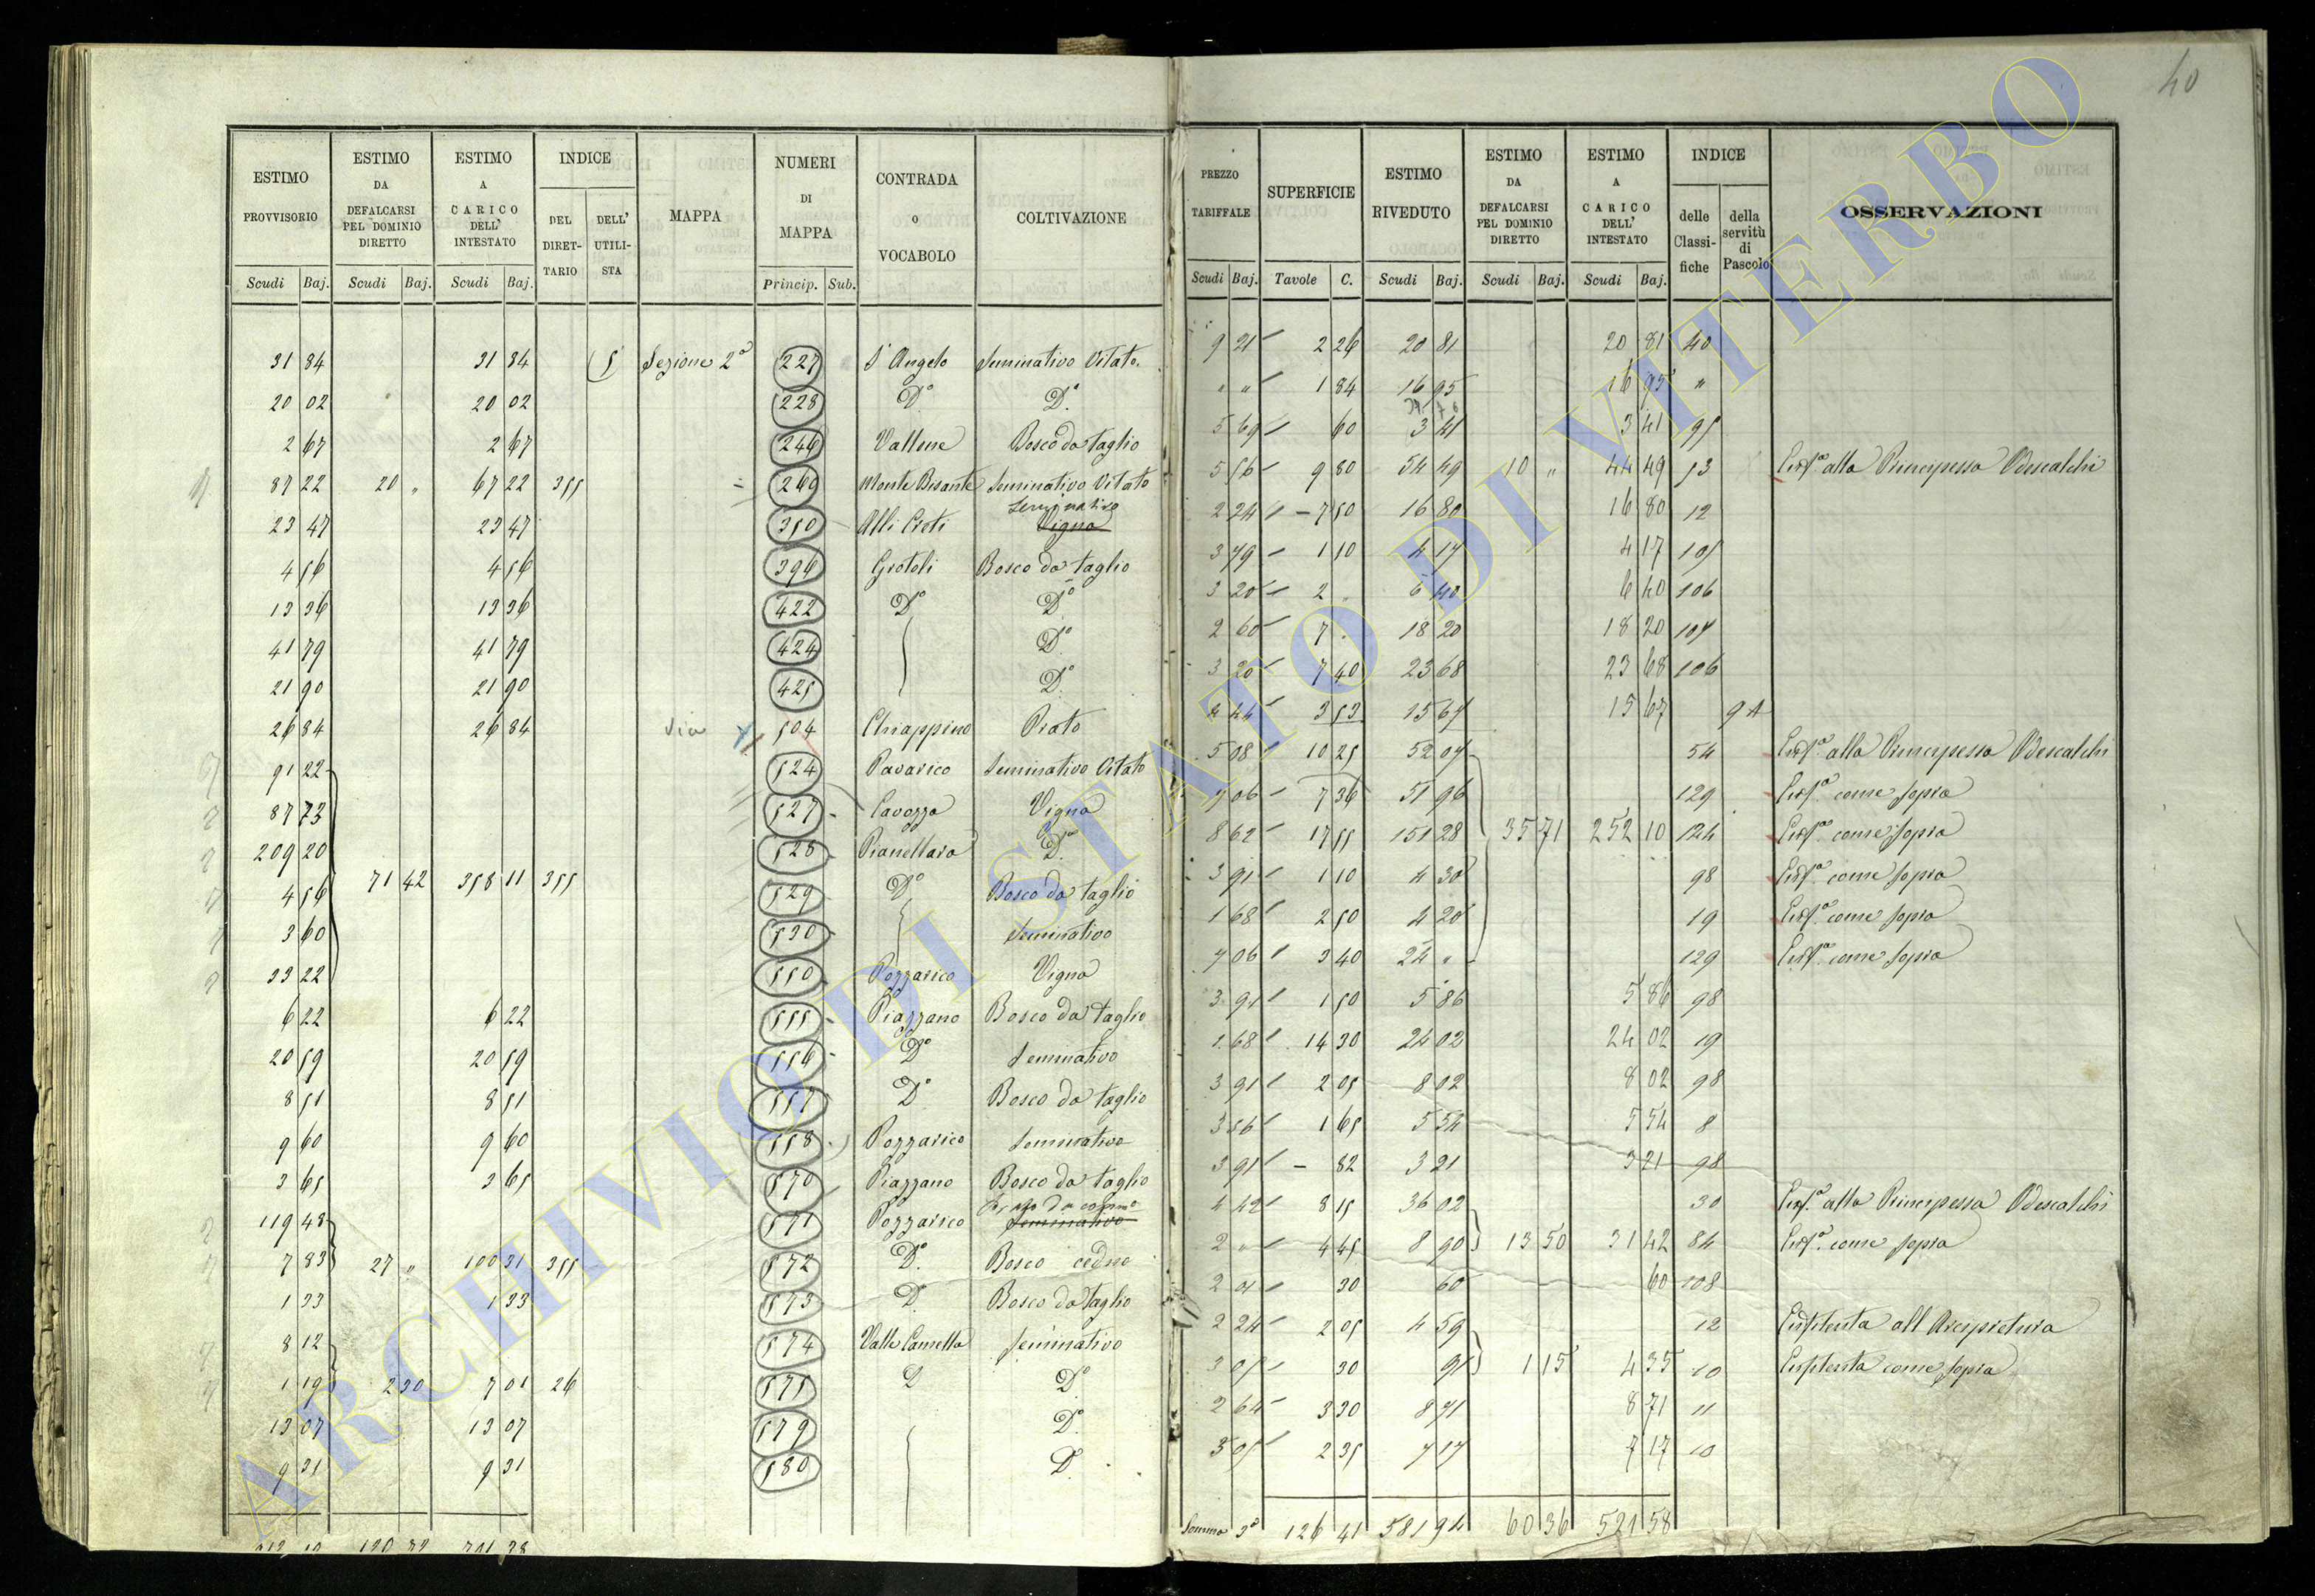 40
ESTIMO PROVVISORIO | ESTIMO DA DEFALCARSI PEL DOMINIO DIRETTO | ESTIMO A CARICO DELL' INTESTATO | INDICE | MAPPA | NUMERI DI MAPPA | CONTRADA o VOCABOLO | COLTIVAZIONE
DEL DIRET-TARIO | DELL' UTILI-STA
Scudi | Baj. | Scudi | Baj. | Scudi | Baj. | Princip. | Sub.
31 84 | 31 84 | 5 | Sezione 2ª | 227 | S. Angelo | Seminativo Vitato
20 02 | 20 02 | 228 | Dº | Dº
2 67 | 2 67 | 246 | Vallone | Bosco da taglio
87 22 | 20 „ | 67 22 | 355 | 269 | Monte Bisante | Seminativo Vitato
23 47 | 23 47 | 350 | Alli Preti | Seminativo Vigna
4 56 | 4 56 | 396 | Grotoli | Bosco da taglio
13 36 | 13 36 | 422 | Dº | Dº
41 79 | 41 79 | 424 | Dº
21 90 | 21 90 | 425 | Dº
26 84 | 26 84 | via | 504 | Chiappino | Prato
91 22 | 524 | Pavarico | Seminativo Vitato
87 73 | 527 | Cavozza | Vigna
209 20 | 528 | Pianellara | Dº
71 42 | 358 11 | 355
4 56 | 529 | Dº | Bosco da taglio
3 60 | 530 | Seminativo
33 22 | 550 | Pozzarico | Vigna
6 22 | 6 22 | 555 | Piazzano | Bosco da taglio
20 59 | 20 59 | 556 | Dº | Seminativo
8 51 | 8 51 | 557 | Dº | Bosco da taglio
9 60 | 9 60 | 558 | Pozzarico | Seminativo
3 65 | 3 65 | 570 | Piazzano | Bosco da taglio
119 48 | 571 | Pozzarico | Seminativo
7 83 | 27 „ | 100 31 | 355 | 572 | Dº | Bosco ceduo
1 33 | 1 33 | 573 | D. | Bosco da taglio
8 12 | 574 | Valle Camella | Seminativo
1 19 | 2 30 | 7 01 | 26 | 575 | D | Dº
13 07 | 13 07 | 579 | Dº
9 31 | 9 31 | 580 | D.
PREZZO TARIFFALE | SUPERFICIE | ESTIMO RIVEDUTO | ESTIMO DA DEFALCARSI PEL DOMINIO DIRETTO | ESTIMO A CARICO DELL' INTESTATO | INDICE | OSSERVAZIONI
delle Classi-fiche | della servitù di Pascolo
Scudi | Baj. | Tavole | C. | Scudi | Baj. | Scudi | Baj. | Scudi | Baj.
9 21 | 2 26 | 20 81 | 20 81 | 40
„ „ | 1 84 | 16 95 | 16 95 | „
5 69 | 60 | 3 41 | 3 41 | 95
5 56 | 9 80 | 54 49 | 10 „ | 44 49 | 13 | Enfª alla Principessa Odescalchi
2 24 | 7 50 | 16 80 | 16 80 | 12
3 79 | 1 10 | 4 17 | 4 17 | 105
3 20 | 2 „ | 6 40 | 6 40 | 106
2 60 | 7 . | 18 20 | 18 20 | 107
3 20 | 7 40 | 23 68 | 23 68 | 106
4 44 | 3 53 | 15 67 | 15 67 | 9A
5 08 | 10 25 | 52 07 | 54 | Enfª alla Principessa Odescalchi
7 06 | 7 36 | 51 96 | 129 | Enfª come sopra
8 62 | 17 55 | 151 28 | 35 71 | 252 10 | 124 | Enfª come sopra
3 91 | 1 10 | 4 30 | 98 | Enfª come sopra
1 68 | 2 50 | 4 20 | 19 | Enfª come sopra
7 06 | 3 40 | 24 „ | 129 | Enfª come sopra
3 91 | 1 50 | 5 86 | 5 86 | 98
1 68 | 14 30 | 24 02 | 24 02 | 19
3 91 | 2 05 | 8 02 | 8 02 | 98
3 36 | 1 65 | 5 54 | 5 54 | 8
3 91 | 82 | 3 21 | 3 21 | 98
4 42 | 8 15 | 36 02 | 30 | Enfª alla Principessa Odescalchi
2 „ | 4 45 | 8 90 | 13 50 | 31 42 | 84 | Enfª come sopra
2 01 | 30 | 60 | 60 | 108
2 24 | 2 05 | 4 59 | 12 | Enfiteuta all Arcipretura
3 05 | 30 | 91 | 1 15 | 4 35 | 10 | Enfiteuta come sopra
2 64 | 3 30 | 8 71 | 8 71 | 11
3 05 | 2 35 | 7 17 | 7 17 | 10
Somma 3ª | 126 41 | 581 94 | 60 36 | 521 58
ARCHIVIO DI STATO DI VITERBO